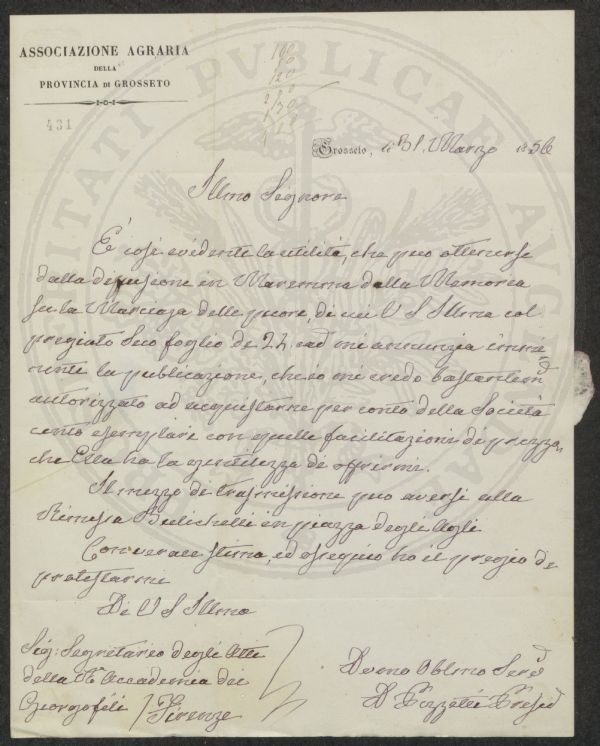 ASSOCIAZIONE AGRARIA
DELLA
PROVINCIA DI GROSSETO
431
100
120
Grosseto, li 31. Marzo 1856
Illmo Signore
È così evidente la utilità, che può ottenersi
dalla difusione in Maremma della Memoria
su la Marciaja delle pecore, di cui V S Illma col
pregiato Suo foglio de 24 cad mi annunzia immi
nente la publicazione, che io mi credo bastantemd
autorizzato ad acquistarne per conto della Società
cento esemplari con quelle facilitazioni di prezzo,
che Ella ha la gentilezza di offrirmi.
Il mezzo di trasmissione può aversi alla
Rimessa in piazza degli Agli
Con verace stima, ed ossequio ho il pregio di
protestarmi
Di V S Illma
Sig: Segretario degli Atti
della Accademia dei
Georgofili / Firenze
Devmo Obblmo Serv
D Pizzetti Presid
PUBLICAE